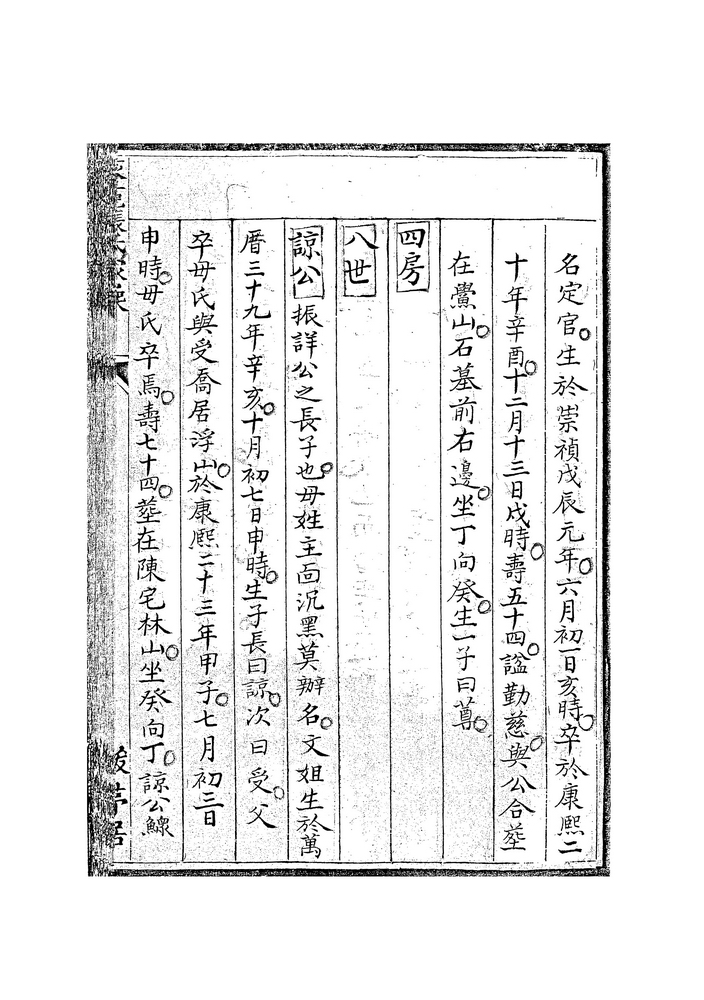 名定官○生於崇禎戊辰元年○六月初一日亥時○卒於康熙二
十年辛酉○十二月十三日戌時○壽五十四○諡勤慈○與公合塟
在鷽山○石墓前右邊○坐丁向癸○生一子曰蓴○
四房
八世
諒公 振詳公之長子也○毋姓主面沉黑莫辦名○文姐生於萬
厝三十九年辛亥○十月初七日申時○生子長曰諒○次曰受○父
卒毋氏與受喬居浮山○於康熙二十三年甲子○七月初三日
申時○毋氏卒焉○壽七十四○塟在陳宅林山○坐癸向丁○諒公鰥
張氏家